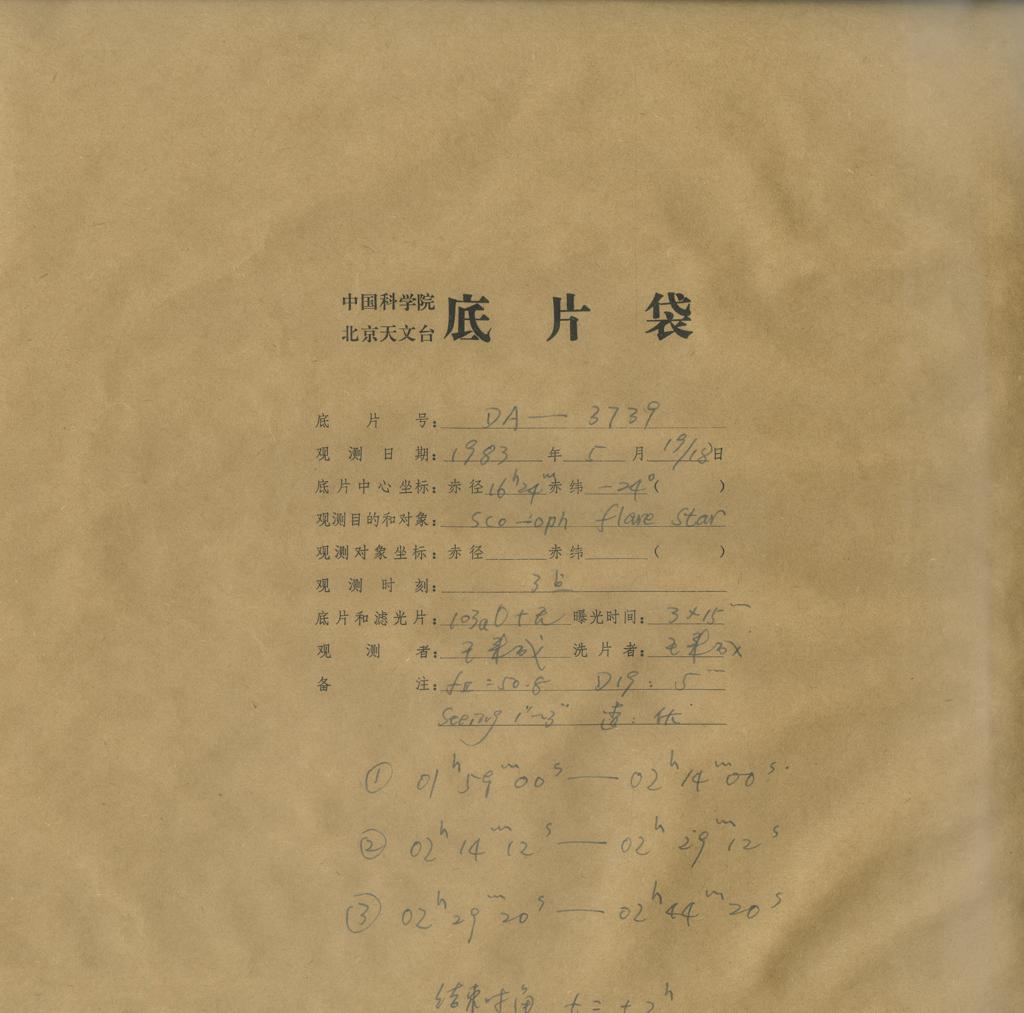 中国科学院
北京天文台
底片袋
底片号: DA— 3739
观测日期: 1983年5月19/18日
底片中心坐标: 赤径16ʰ24ᵐ赤纬-24°( )
观测目的和对象: Sco-oph flare star
观测对象坐标: 赤径 赤纬 ( )
观测时刻: 3
底片和滤光片: 103aO+ 曝光时间: 3×15ᵐ
观测者: 王 洗片者: 王
备注: fⅡ=50.8 D19: 5ᵐ
Seeing 1"~3" 透: 优
① 01ʰ59ᵐ00ˢ—02ʰ14ᵐ00ˢ.
② 02ʰ14ᵐ12ˢ—02ʰ29ᵐ12ˢ
③ 02ʰ29ᵐ20ˢ—02ʰ44ᵐ20ˢ
结束时角 t=+2ʰ